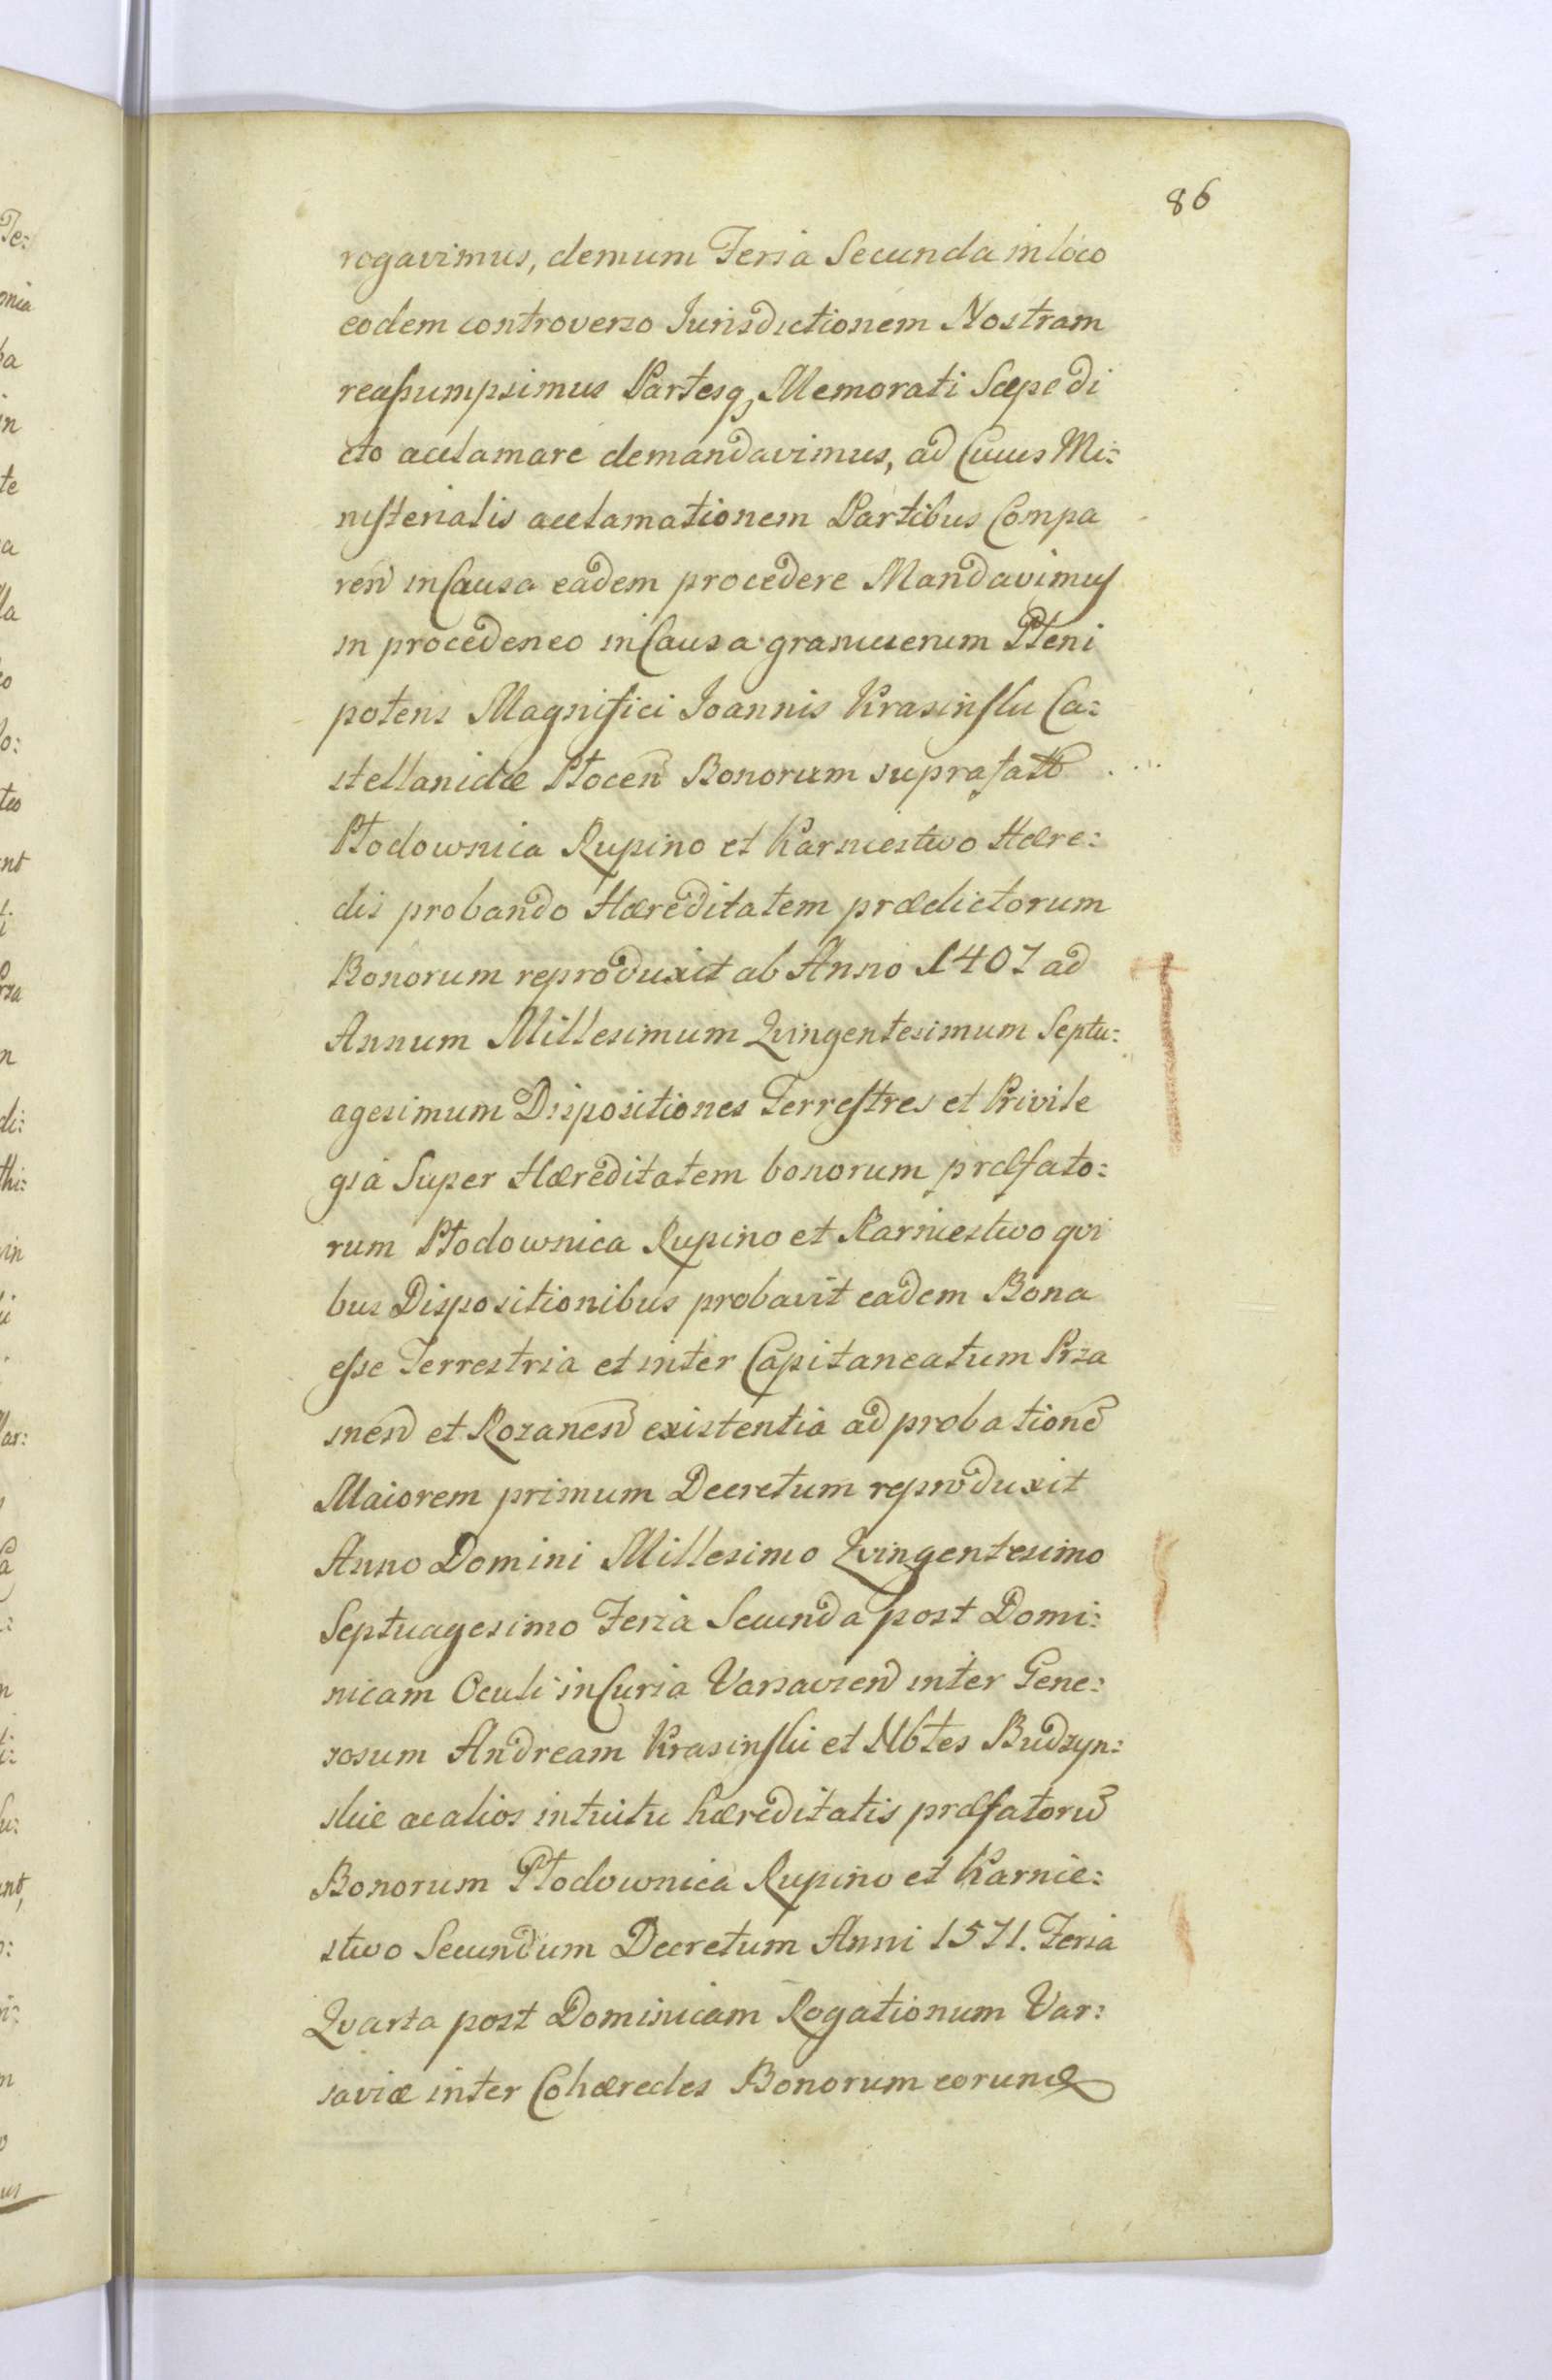 86
rogavimus, demum Feria Secunda in loco
eodem controverso Jurisdictionem Nostram
reaßumpsimus Partesq, Memorati Sæpe di
cto acclamare demandavimus, ad Cuius Mi:
nisterialis acclamationem Partibus Compa
ren in Causa eadem procedere Mandavimus
in procedeneo in Causa granicierum Pleni
potens Magnifici Joannis Krasinski Ca:
stellanidæ Płocen Bonorum suprafatt
Płodownica Rupino et Karniestwo Hære:
dis probando Hæreditatem prædictorum
Bonorum reproduxit ab Anno 1407 ad
Annum Millesimum Qvingentesimum Septu:
agesimum Dispositiones Terrestres et Privile
gia Super Hæreditatem bonorum præfato:
rum Płodownica Rupino et Karniestwo qvi
bus Dispositionibus probavit eadem Bona
eße Terrestria et inter Capitaneatum Prza
snen et Rozanen existentia ad probationē
Maiorem primum Decretum reproduxit
Anno Domini Millesimo Qvingentesimo
Septuagesimo Feria Secunda post Domi:
nicam Oculi in Curia Varsavien inter Gene:
rosum Andream Krasinski et Nbłes Budzyn:
skie ac alios intuitu hæreditatis præfatorū
Bonorum Płodownica Rupino et Karnie:
stwo Secundum Decretum Anni 1571. Feria
Qvarta post Dominicam Rogationum Var:
saviæ inter Cohæredes Bonorum eorund